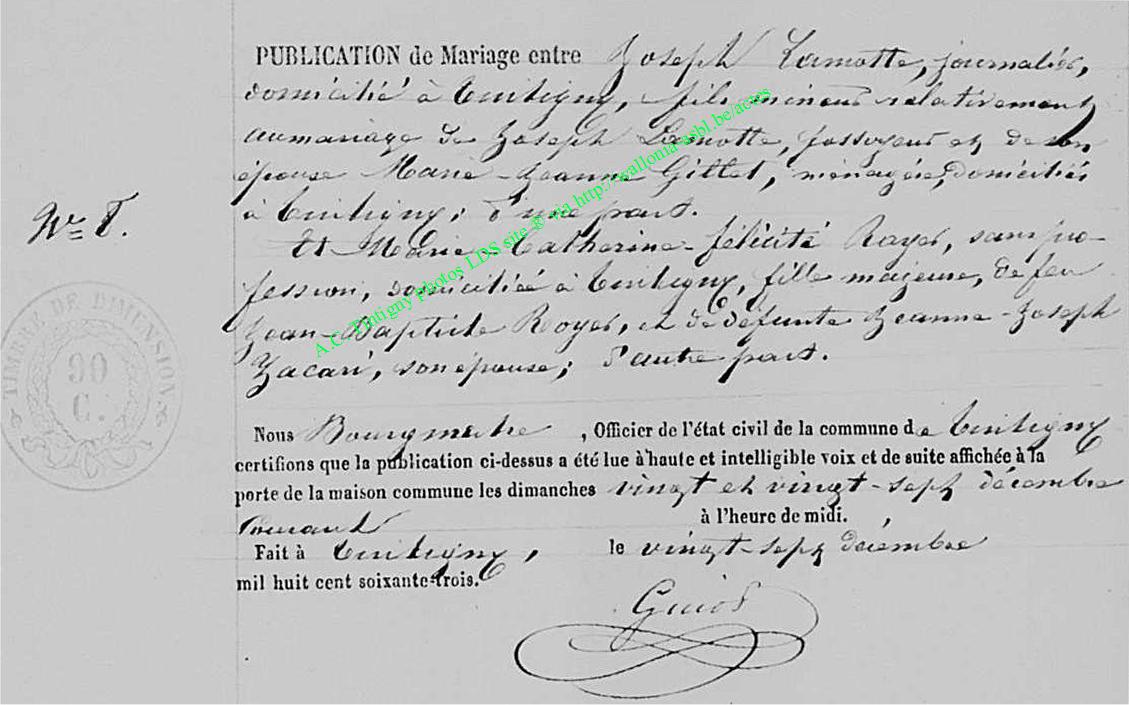 PUBLICATION de Mariage entre Joseph Lamotte, journalier,
domicilié à Tintigny, fils mineur relativement
au mariage de Joseph Lamotte, fossoyeur et de son
épouse Marie-Jeanne Gillet, ménagère, domiciliés
à Tintigny; d'une part.
Et Marie-Catherine-félicité Royer, sans pro-
fession, domiciliée à Tintigny, fille majeure, de feu
Jean-Baptiste Royer, et de défunte Jeanne-Joseph
Zacari, son épouse; d'autre part.
Nous Bourgmestre, Officier de l'état civil de la commune de Tintigny
certifions que la publication ci-dessus a été lue à haute et intelligible voix et de suite affichée à la
porte de la maison commune les dimanches vingt et vingt-sept décembre
courant à l'heure de midi.
Fait à Tintigny, le vingt-sept décembre
mil huit cent soixante-trois.
Guiot
TIMBRE DE DIMENSION
90
C.
A.C. Tintigny photos LDS site ® via http://wallonia-asbl.be/actes